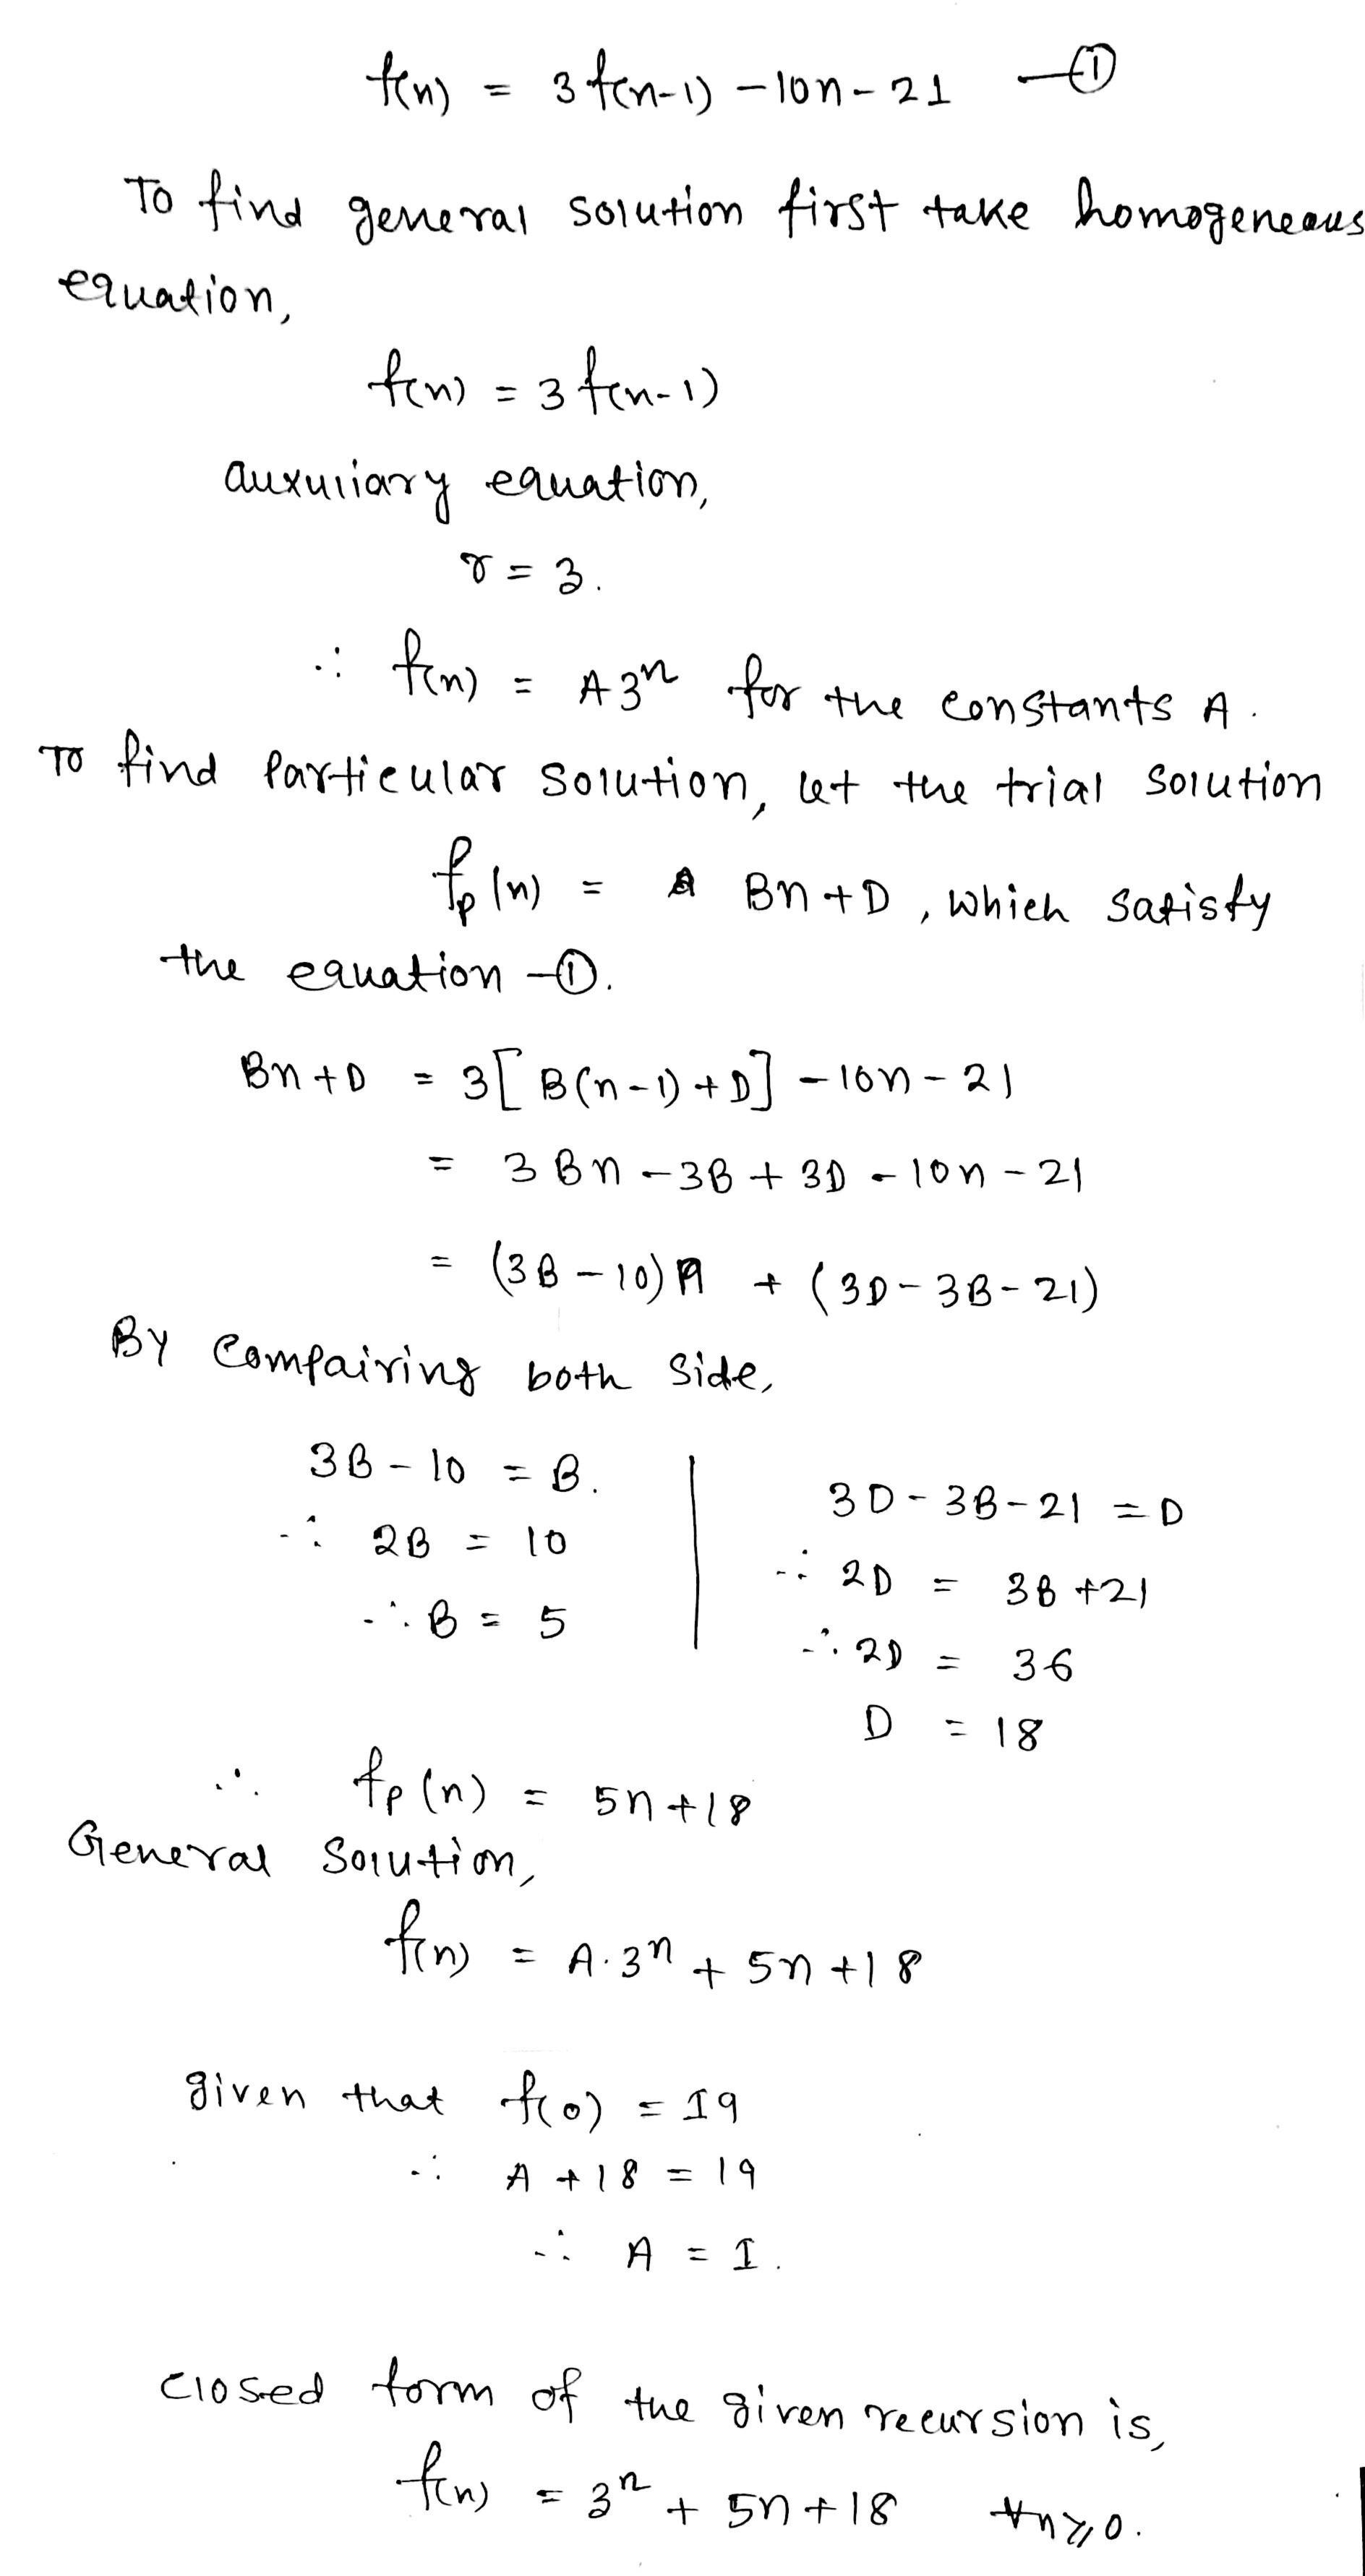 f(n) = 3f(n-1) - 10n - 21 —①
To find general solution first take homogeneous
equation,
f(n) = 3f(n-1)
auxuliary equation,
r = 3.
∴ f(n) = A3ⁿ for the constants A.
To find particular solution, let the trial solution
fₚ(n) = Bn + D, which satisfy
the equation —①.
Bn + D = 3[B(n-1) + D] - 10n - 21
= 3Bn - 3B + 3D - 10n - 21
= (3B - 10)n + (3D - 3B - 21)
By compairing both side,
3B - 10 = B.
∴ 2B = 10
∴ B = 5
3D - 3B - 21 = D
∴ 2D = 3B + 21
∴ 2D = 36
D = 18
∴ fₚ(n) = 5n + 18
General solution,
f(n) = A·3ⁿ + 5n + 18
given that f(0) = 19
∴ A + 18 = 19
∴ A = 1.
closed form of the given recursion is,
f(n) = 3ⁿ + 5n + 18 ∀n≥0.